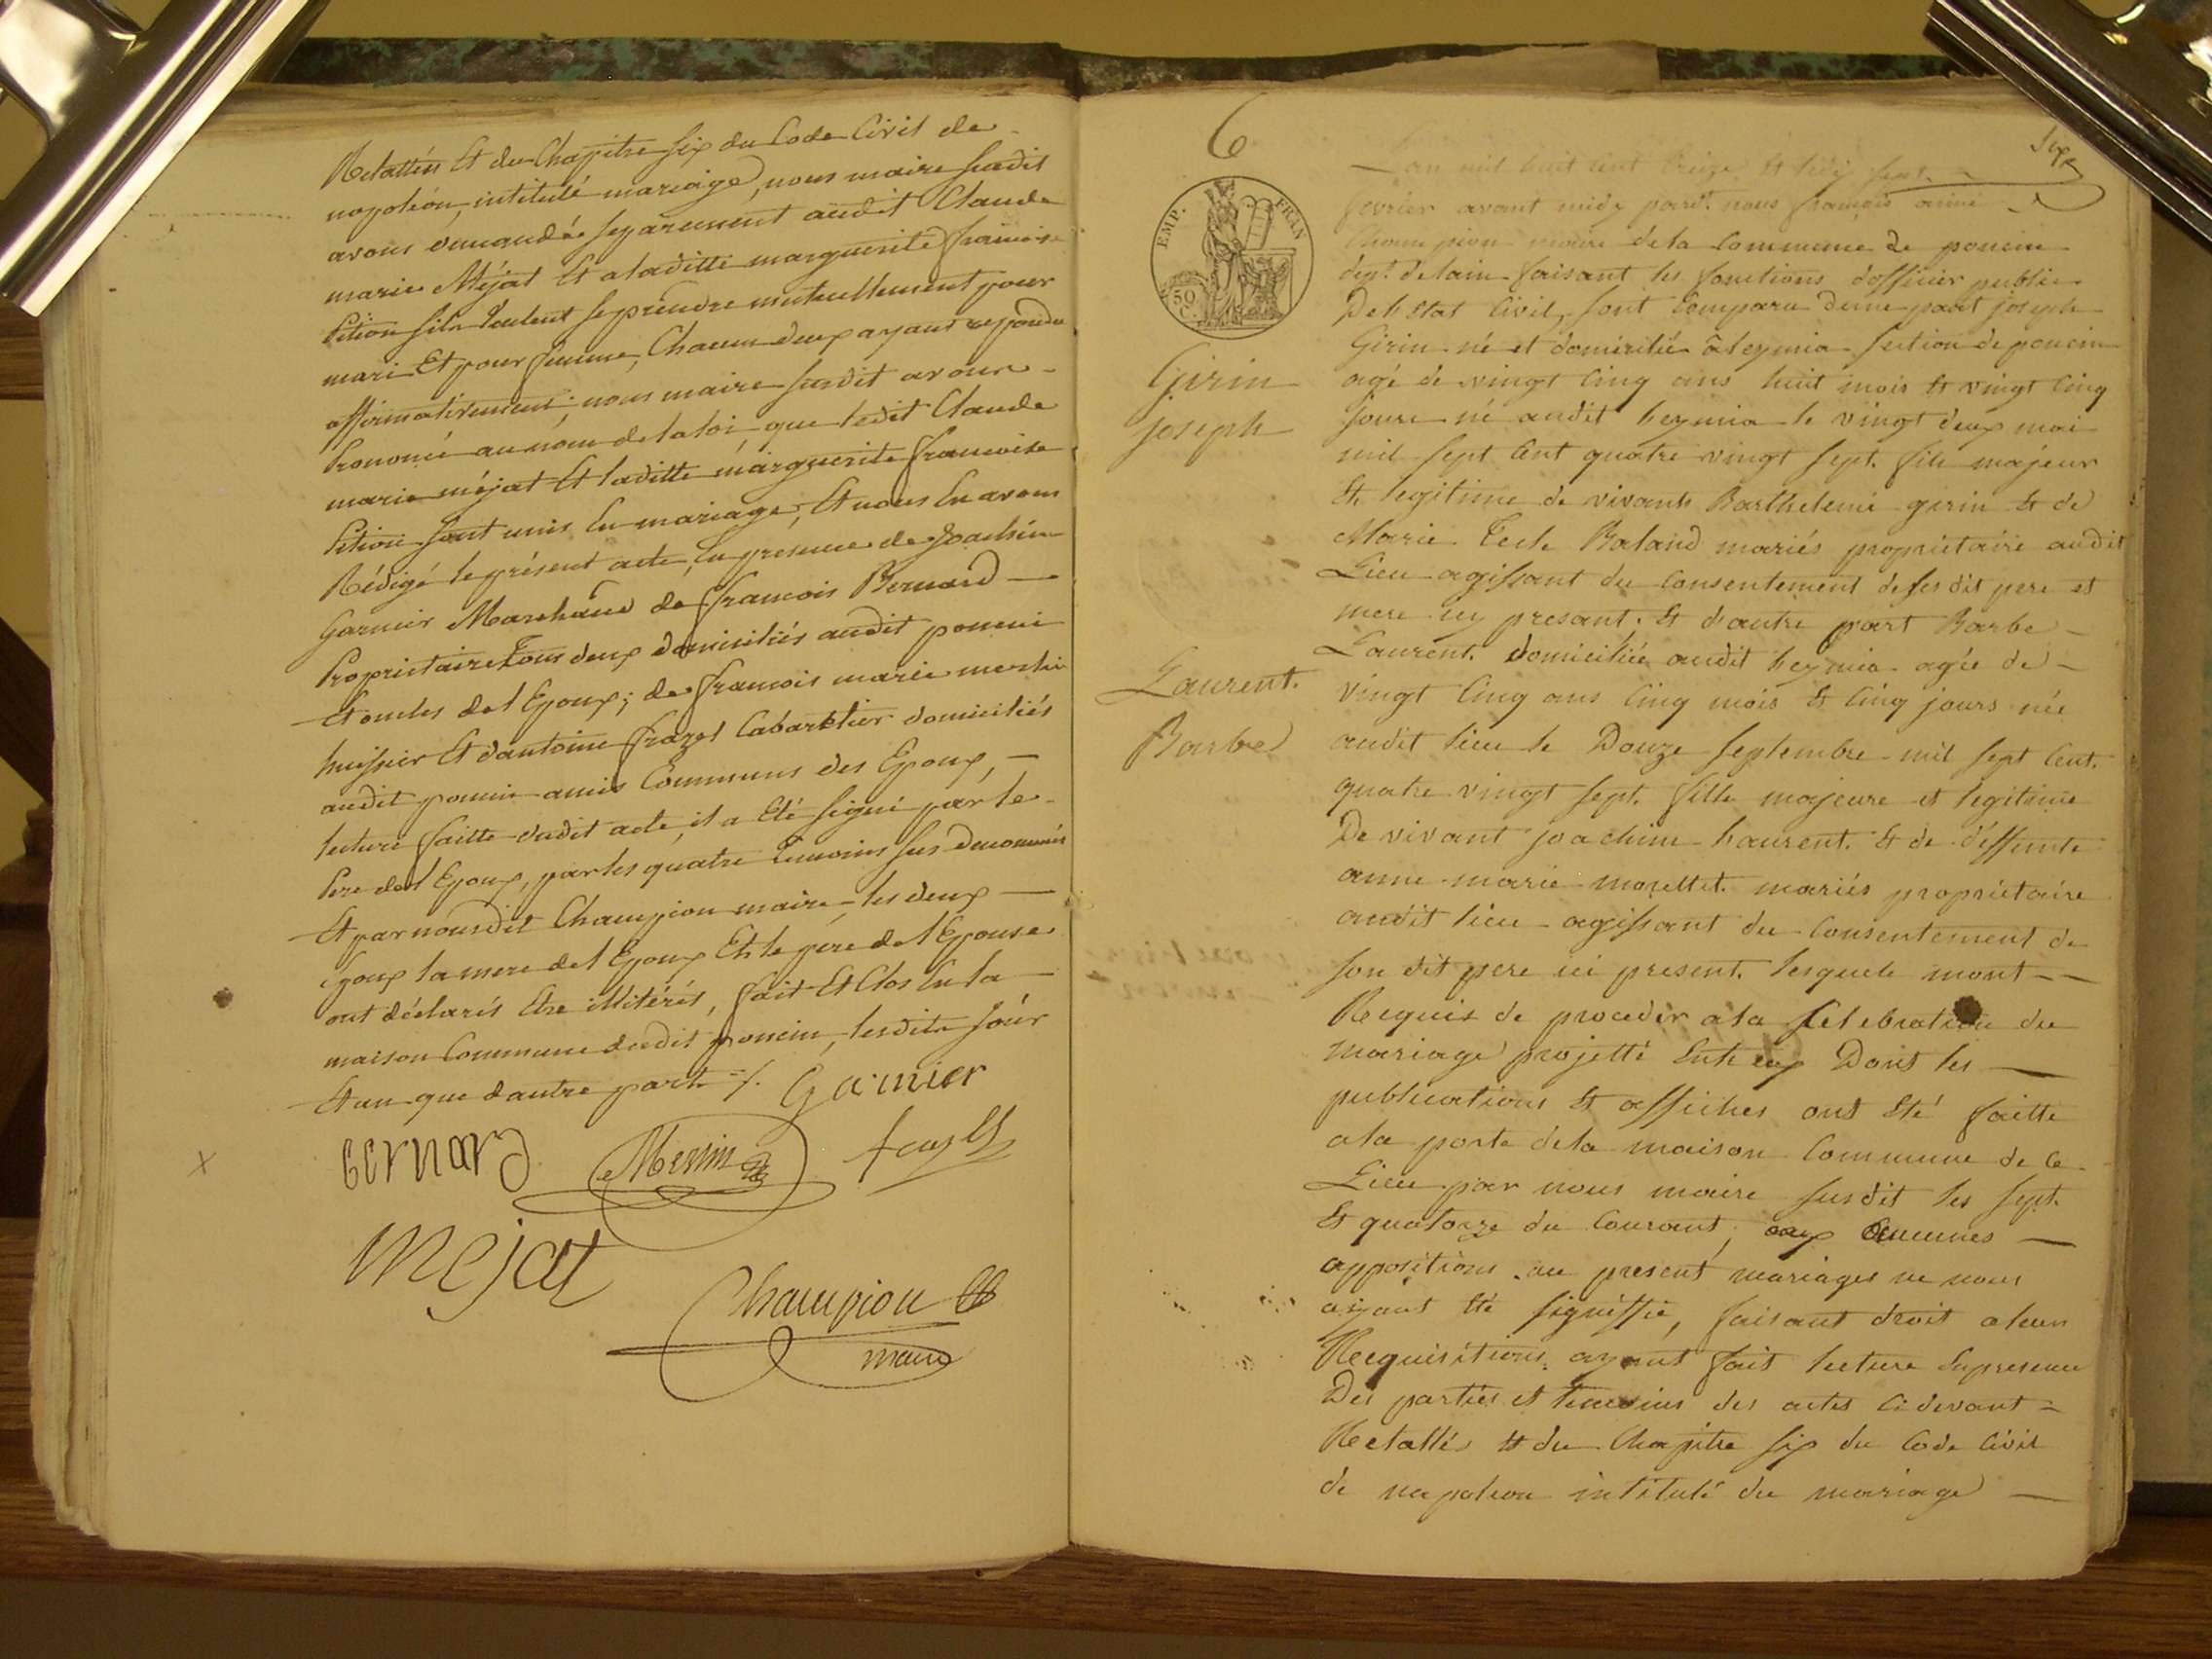 Relattés Et du Chapitre six du Code Civil de
napoléon, intitulé mariage, nous maire susdit
avons demandés separement audit Claude
marie Méjat Et a laditte marguerite francoise
sils veulent se prendre mutuellement pour
mari Et pour femme, Chacun deux ayant repondu
affirmativement; nous maire susdit avons
Prononcé au nom de la loi que ledit Claude
marie méjat Et laditte marguerite francoise
sont unis En mariage, Et nous En avons
Rédigé le présent acte, En presence de Joachim
Garnier Marchand de francois Bernard
Proprietaire Tous deux domiciliés audit poncin
Et oncles de l'Epoux; de francois marie merlin
huissier Et dantoine frazet Cabaretier domiciliés
audit poncin amis Communs des Epoux,
lecture faitte dudit acte, il a Eté signé par le
Pere de l'Epoux, par les quatre Temoins sus denommés
Et par nousdit Champion maire, les deux
Epoux la mere de l'Epoux Et le père de l'Epouse
ont déclarés Etre illitérés, fait Et Clos En la
maison Commune dudit poncin, lesdits jour
Et an que dautre part ./.
Garnier
Bernard
Merlin
Mejat
Champion
maire
6
Sept
EMP. FRAN
50 C.
Girin
joseph
Laurent.
Barbe
Lan mil huit cent treize Et le dix sept
fevrier avant midy pard.t nous francois aimé
Champion maire de la Commune de poncin
dep.t de lain faisant les fonctions dofficier public
De l'Etat Civil, sont Comparu dune part joseph
Girin né et domicilié a leymia section de poncin
agé de vingt Cinq ans huit mois Et vingt Cinq
jours né audit leymia le vingt deux mai
mil sept Cent quatre vingt sept. fils majeur
Et legitime de vivants Barthelemi girin Et de
Marie Baland mariés proprietaire audit
Lieu agissant du Consentement de ses dit pere et
mere icy presant. Et d'autre part Barbe
Laurent. domiciliée audit leymia agée de
vingt Cinq ans Cinq mois Et Cinq jours née
audit lieu le Douze septembre mil sept Cent.
quatre vingt sept. fille majeure et legitime
De vivant joachim Laurent. Et de déffunte
anne marie morellet. mariés proprietaire
audit lieu agissant du Consentement de
son dit pere ici present. lesquels mont
Requis de proceder a la Celebration du
mariage projetté Entreux Dont les
publications Et affiches ont Eté faitte
a la porte de la maison Commune de Ce
Lieu par nous maire susdit les sept.
Et quatorze du Courant, aucunes
oppositions au present mariages ne nous
ayant Eté signiffié, faisant droit a leur
Requisitions, ayant fait lecture En presence
Des parties et temoins des actes Cidevant
Relattés Et du Chapitre six du Code Civil
de napoleon intitulé du mariage